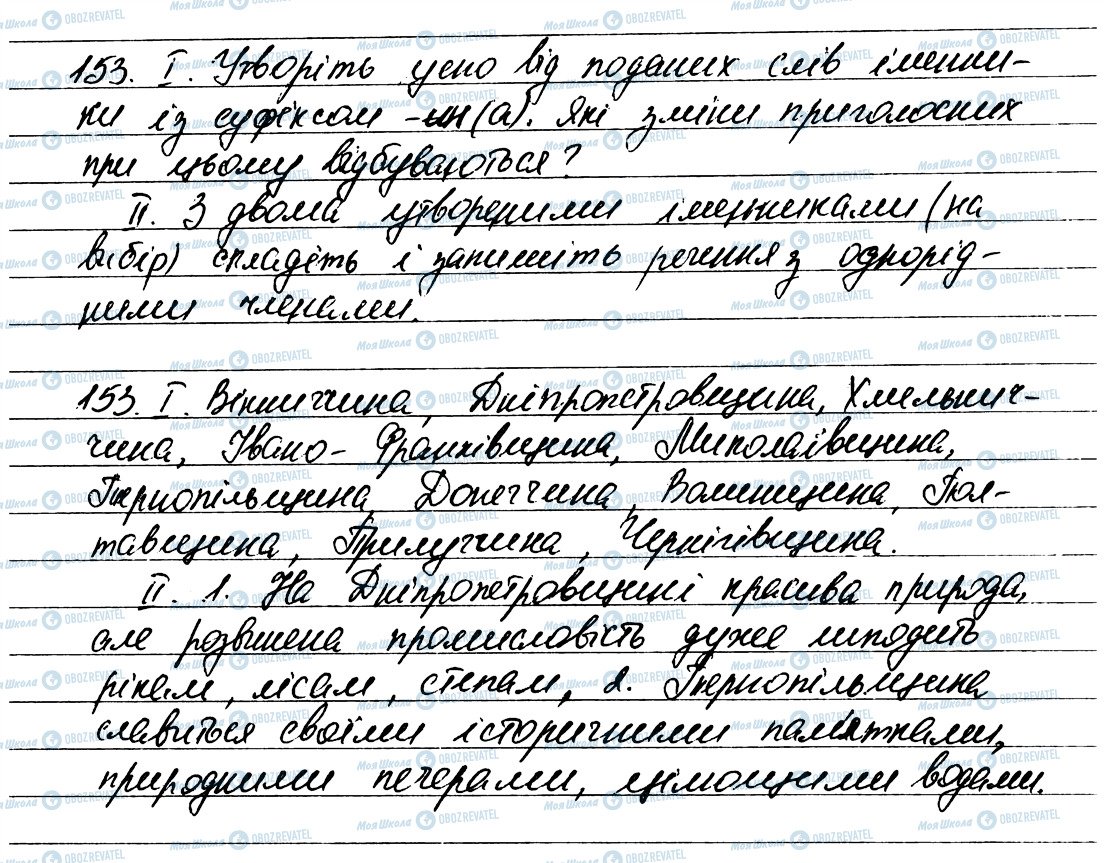 153. І. Утворіть усно від поданих слів іменни-
ки із суфіксом -ин(а). Які зміни приголосних
при цьому відбуваються?
ІІ. З двома утвореними іменниками (на
вибір) складіть і запишіть речення з однорід-
ними членами.
153. І. Вінниччина, Дніпропетровщина, Хмельнич-
чина, Івано-Франківщина, Миколаївщина,
Тернопільщина, Донеччина, Волинщина, Пол-
тавщина, Прилуччина, Чернігівщина.
ІІ. 1. На Дніпропетровщині красива природа,
але розвинена промисловість дуже шкодить
рікам, лісам, степам. 2. Тернопільщина
славиться своїми історичними пам'ятками,
природними печерами, цілющими водами.